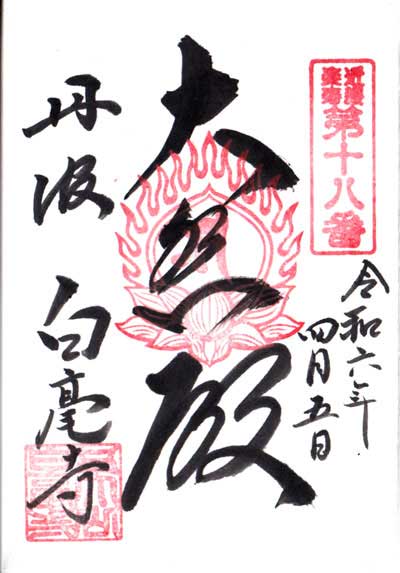 近畿
楽寿
第十八番
令和六年
四月五日
大悲殿
丹波 白毫寺